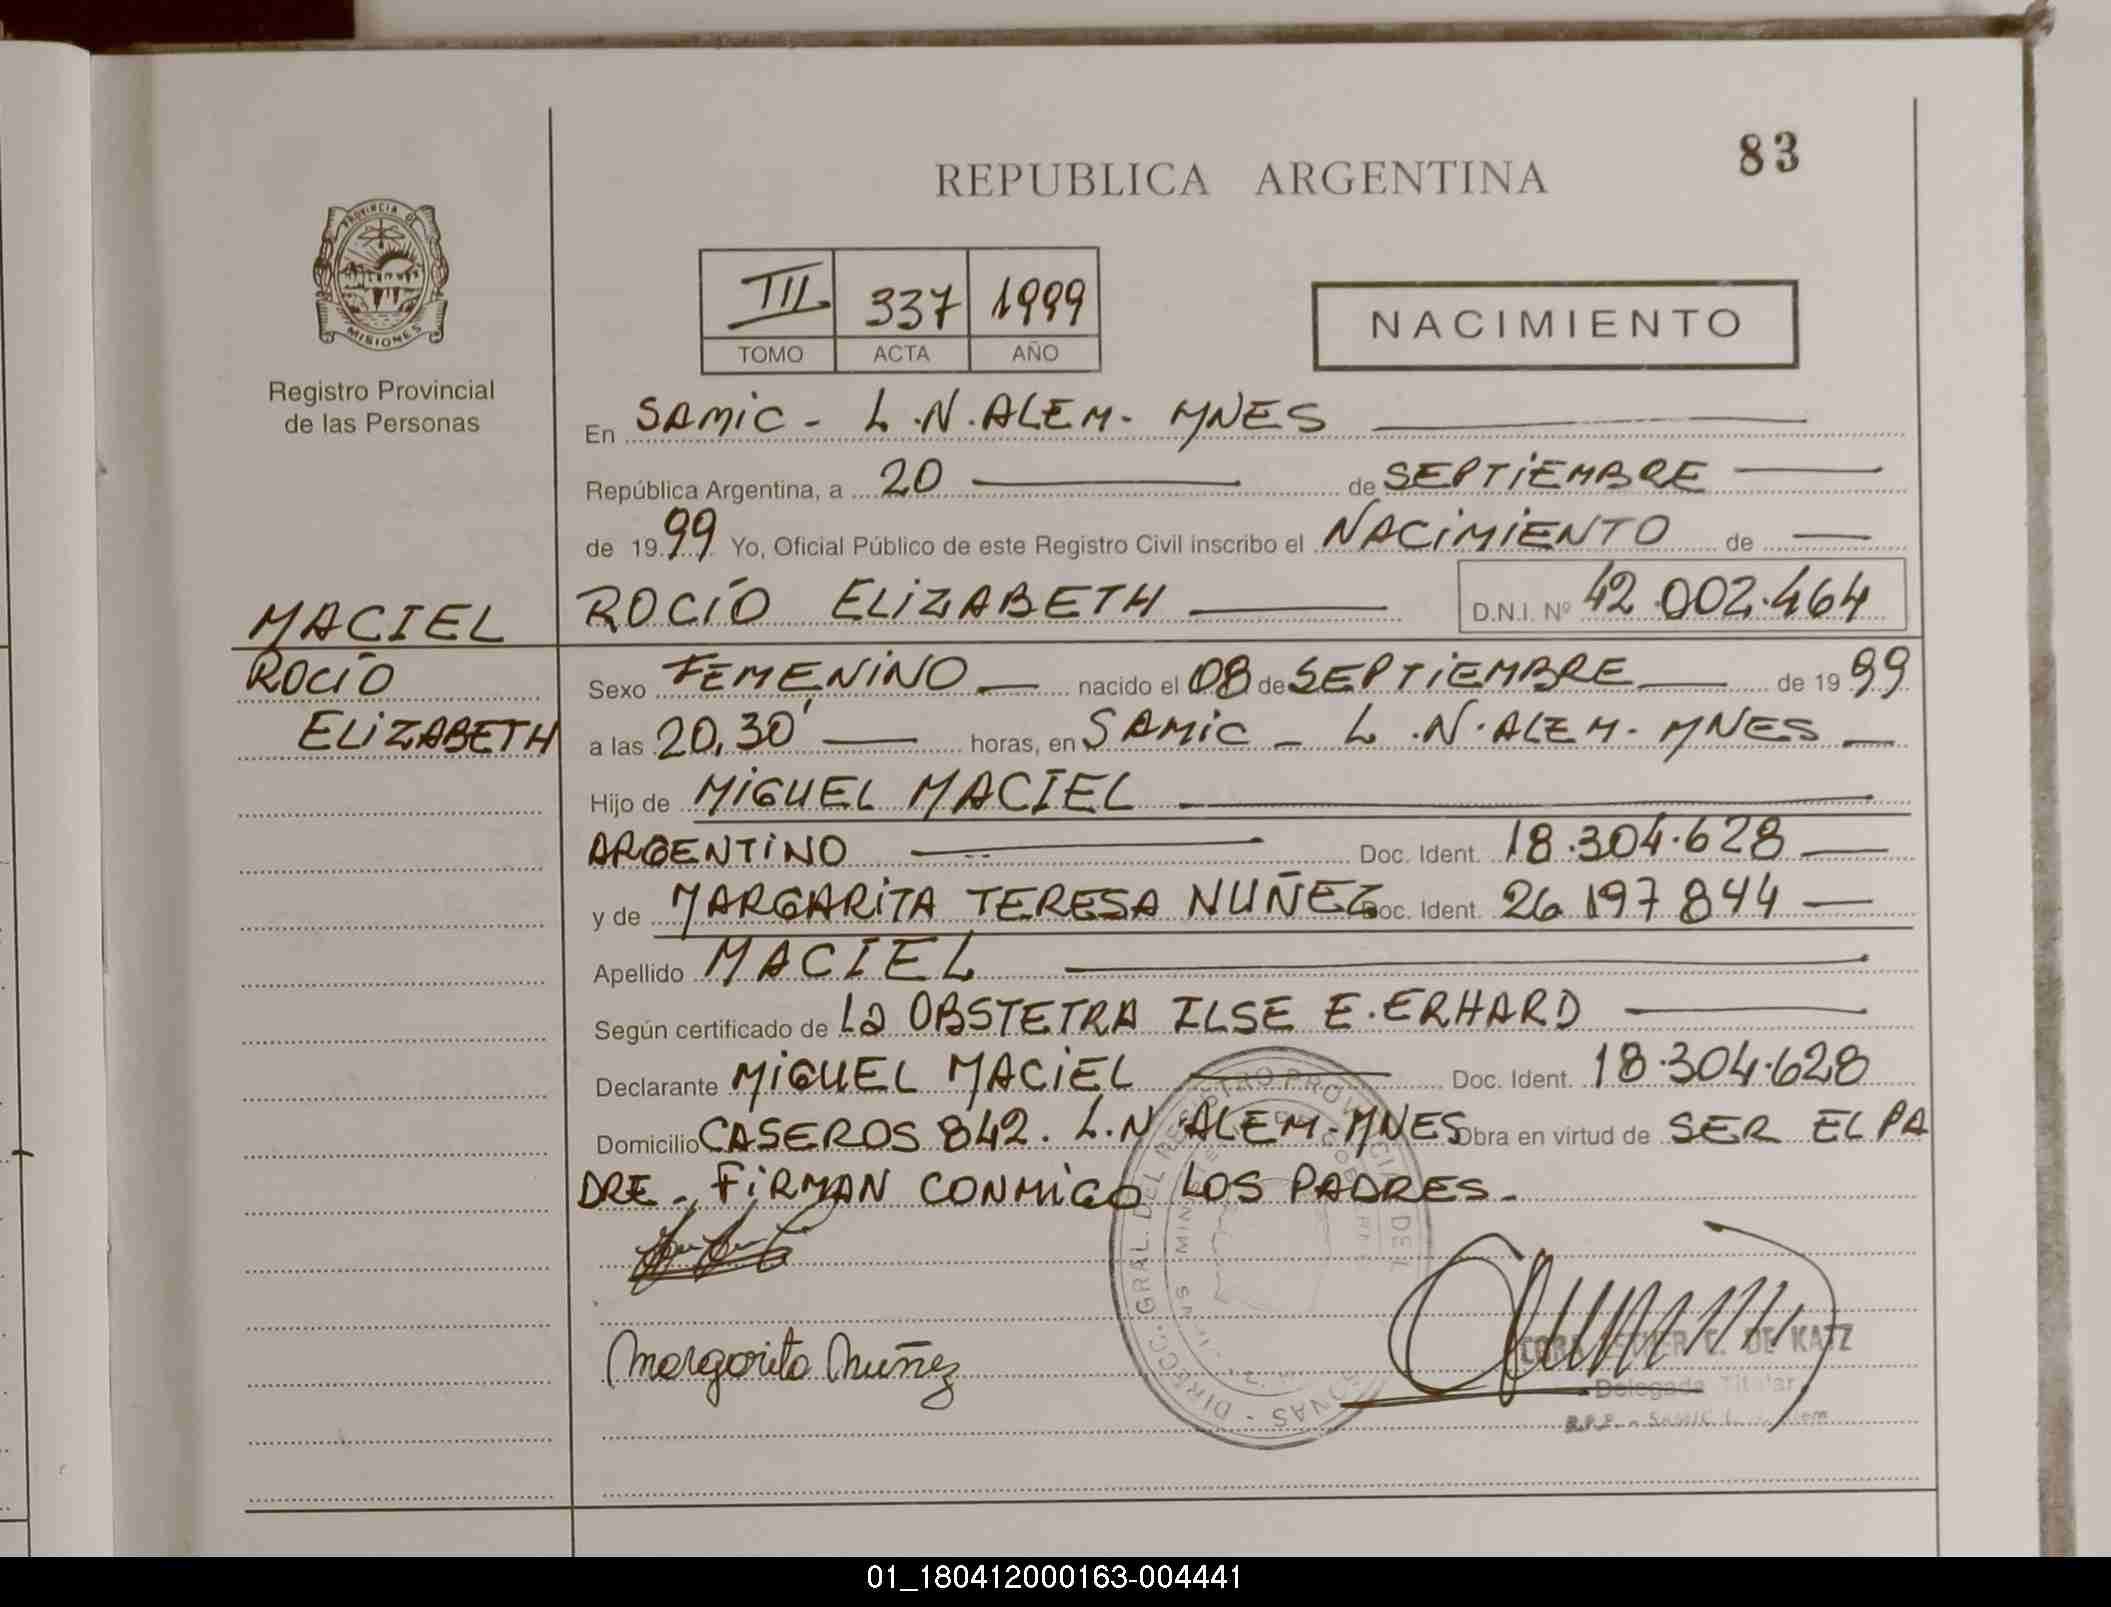 83
REPUBLICA ARGENTINA
PROVINCIA DE
MISIONES
Registro Provincial
de las Personas
III 337 1999
TOMO ACTA AÑO
NACIMIENTO
En SAMIC - L.N.ALEM - MNES
República Argentina, a 20 de SEPTIEMBRE
de 1999 Yo, Oficial Público de este Registro Civil inscribo el NACIMIENTO de
MACIEL ROCÍO ELIZABETH D.N.I. Nº 42.002.464
ROCÍO Sexo FEMENINO nacido el 08 de SEPTIEMBRE de 1999
ELIZABETH a las 20,30' horas, en SAMIC - L.N.ALEM - MNES
Hijo de MIGUEL MACIEL
ARGENTINO Doc. Ident. 18.304.628
y de MARGARITA TERESA NUÑEZ Doc. Ident. 26 197 844
Apellido MACIEL
Según certificado de La OBSTETRA ILSE E.ERHARD
Declarante MIGUEL MACIEL Doc. Ident. 18.304.628
Domicilio CASEROS 842. L.N.ALEM-MNES Obra en virtud de SER EL PA
DRE - FIRMAN CONMIGO LOS PADRES -
Margarita Nuñez
DE KATZ
Delegada Titular
01_180412000163-004441